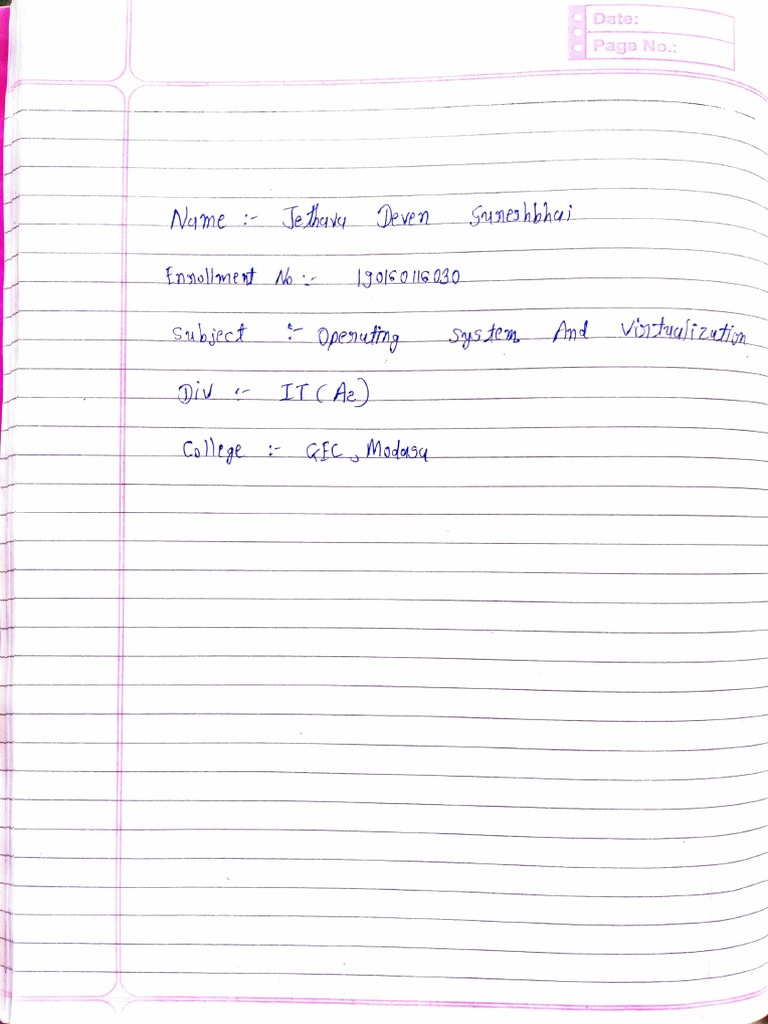 Date:
Page No.:
Name :- Jethava Deven Sureshbhai
Enrollment No :- 190160116030
Subject :- Operating System And Virtualization
Div :- IT (A2)
College :- GEC, Modasa